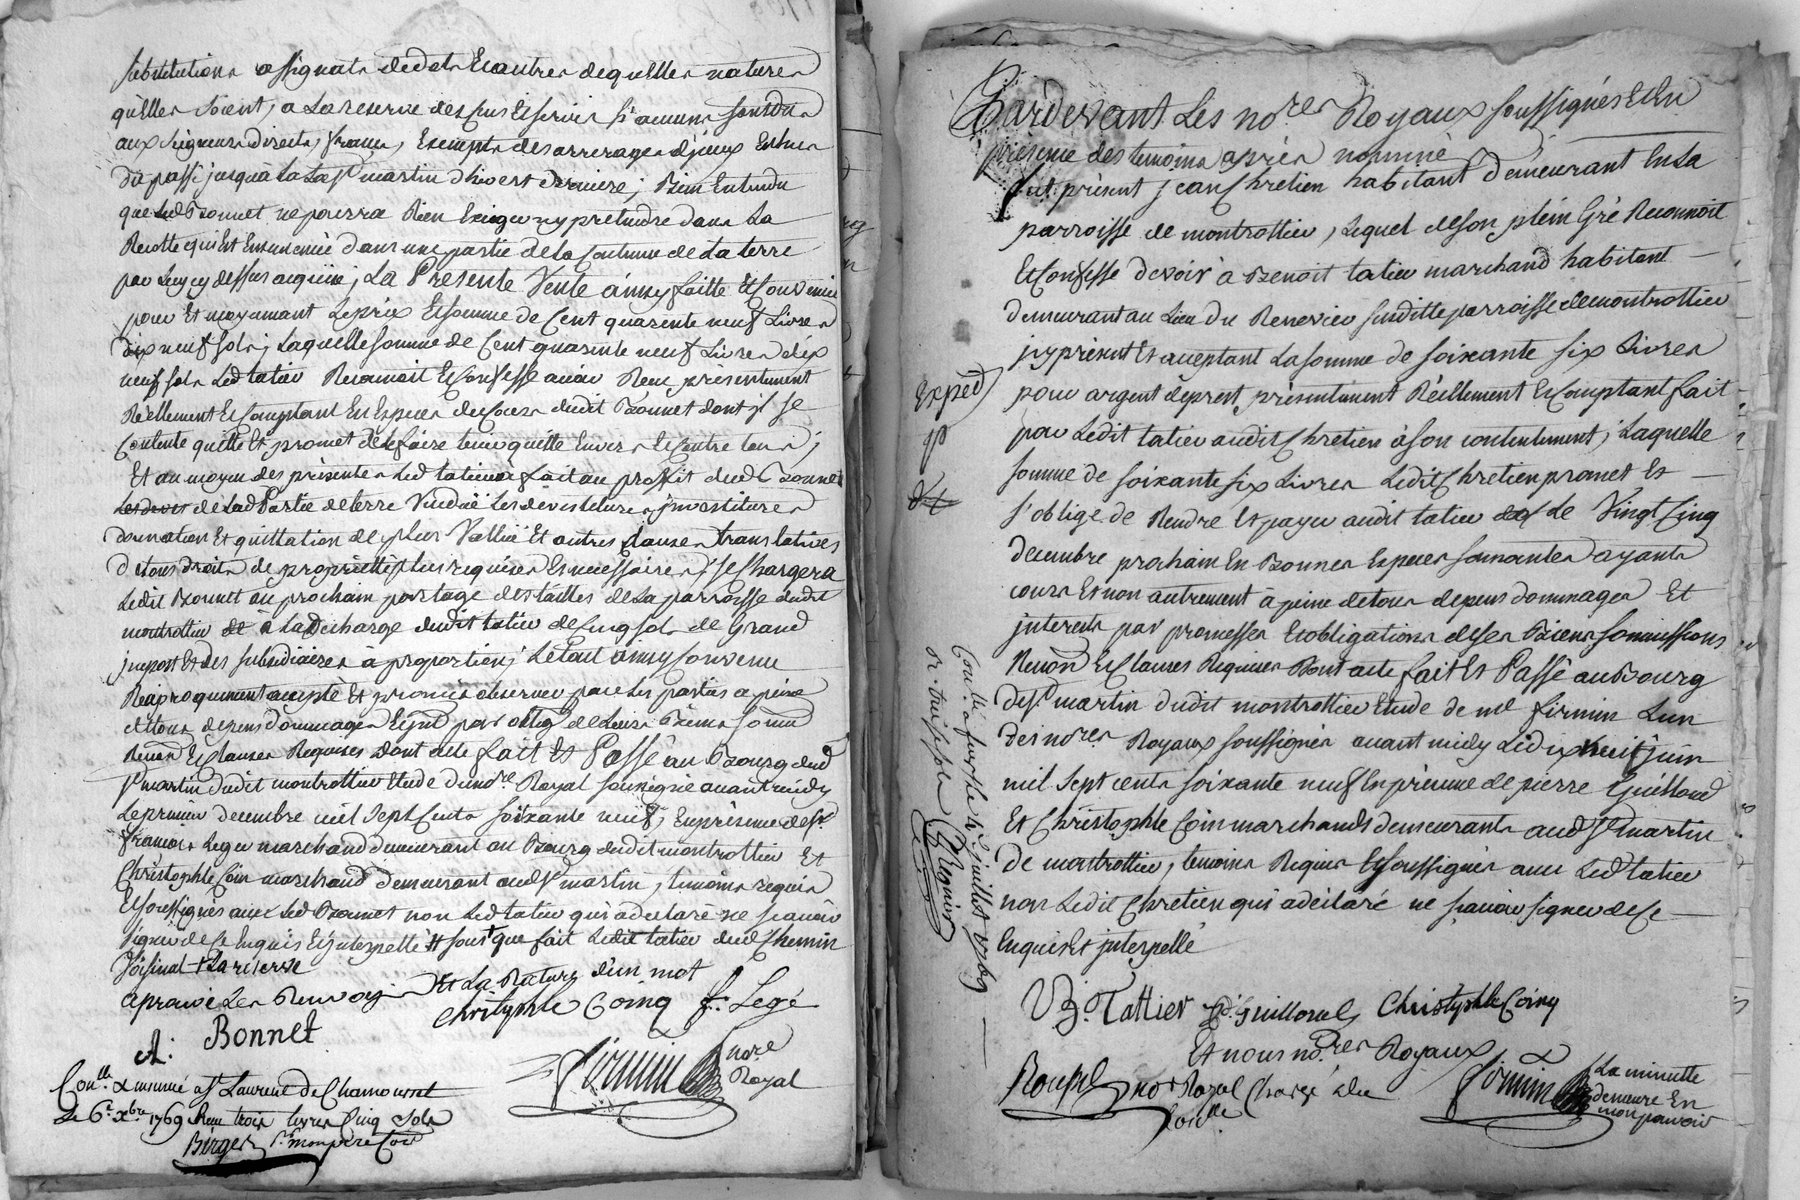 substitutions assignats de dots Et autres de quelles natures
qu'elles soient, a La reserve des Cens Et servis si aucuns sont dus
aux seigneurs directs, francs, Exempts des arrerages d'jceux Et tues
du passé jusqu'à La St martin d'hivert derniere; Bien Entendu
que Led Bonnet ne pourra Rien Exiger ny pretendre dans La
Recolte qui Est Ensemencée dans une partie de la Contenue de La terre
par Luy cy dessus acquise; La Presente Vente ainsy faitte Et Convenüe
pour Et moyennant Le prix Et somme de Cent quarente neuf Livres
dix neuf sols; Laquelle somme de Cent quarente neuf Livres dix
neuf sols Led tatier Reconnoit Et Confesse avoir Reçu présentement
Réellement Et Comptant En Especes de Cours dudit Bonnet dont jl se
Contente quitte Et promet de le faire tenir quitte Envers Et Contre tous;
Et au moyen des présentes Led tatier a fait au proffit dud Bonnet
de Lad Partie de terre Vendüe Les devestitures jnvestitures
donnation Et quittation de plus Vallüe Et autres clauses translatives
de tous droits de propriétté plus requises Et necessaires; se Chargera
Ledit Bonnet au prochain partage des tailles de La parroisse dudit
montrottier à La décharge dudit tatier de Cinq sols de Grand
jmpost Et des subsidiaires à proportion; Le tout ainsy Convenu
Réciproquement accepté Et promis observer par Les parties a peine
de tous depens dommages Et jnt par oblig de Leurs Biens soum
Renon Et Clauses Requises Dont acte fait Et Passé au Bourg dud
St martin dudit montrottier Etude du nore Royal soussigné avant midy
Le premier decembre mil sept Cents soixante neuf, En présence de Sr
francois Leger marchand demeurant au Bourg dudit montrottier Et
Christophle Coin marchand demeurant aud St martin, temoins requis
Et soussignés avec Led Bonnet non Led tatier qui a déclaré ne sçavoir
signer de Ce Enquis Et jnterpellé # sous que fait Ledit tatier dud Chemin
Voisinal + La riserve
aprouvé Les Renvois Et La Rature d'un mot
Christophle Coing f. Legé
A: Bonnet
Firmin nore Royal
Conllé & insinué a St Laurent de Chamousset
Le 6e Xbre 1769 Reçu trois livres Cinq sols
Berger Pr mon pere
Pardevant Les nores Royaux soussignés Et En
présence des temoins après nommé
fut présent jean Chretien habitant demeurant En La
parroisse de montrottier, Lequel de son plein Gré Reconnoit
Et Confesse devoir à Benoit tatier marchand habitant
demeurant au Lieu du Renevier susditte parroisse de montrottier
jcy présent Et acceptant La somme de soixante six Livres
pour argent de prest présentement Réellement Et Comptant fait
par Ledit tatier audit Chretien à son contentement; Laquelle
somme de soixante six Livres Ledit Chretien promet Et
s'oblige de Rendre Et payer audit tatier Le Vingt Cinq
decembre prochain En Bonnes Especes sonnantes ayants
cours Et non autrement a peine de tous depens dommages Et
jnterests par promesses Et obligations de ses Biens soumissions
Renon Et Clauses Requises Dont acte fait Et Passé au Bourg
de St martin dudit montrottier Etude de me firmin L'un
des nores Royaux soussignés avant midy Le dix huit juin
mil sept cents soixante neuf En présence de pierre Guillond
Et Christophle Coin marchands demeurants aud St martin
de montrottier, temoins Requis Et soussignés avec Led tatier
non Ledit Chretien qui a déclaré ne sçavoir signer de Ce
Enquis Et jnterpellé
B. Tattier Guillond Christophle Coing
Et nous nores Royaux
nore Royal Chargé du Conlle
Firmin La minutte demeure En mon pouvoir
Expéd
Conllé a 1769
Re treize sols